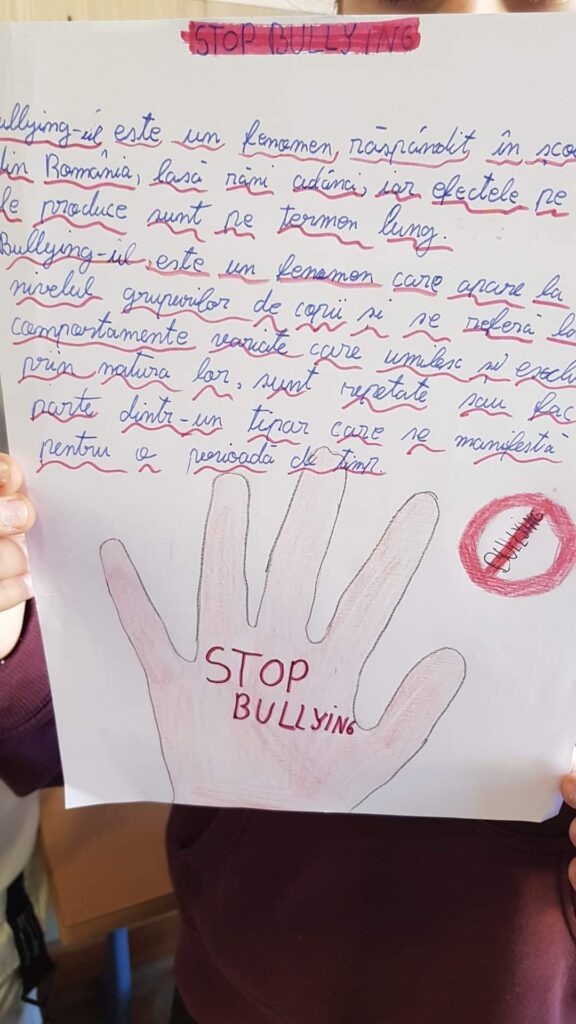 STOP BULLYING
ullying-ul este un fenomen, răspândit în șco
din România, lasă răni adânci, iar efectele pe
le produce sunt pe termen lung.
Bullying-ul este un fenomen care apare la
nivelul grupurilor de copii și se referă la
comportamente variate care umilesc și exclu
prin natura lor, sunt repetate sau fac
parte dintr-un tipar care se manifestă
pentru o perioadă de timp.
BULLYING
STOP
BULLYING